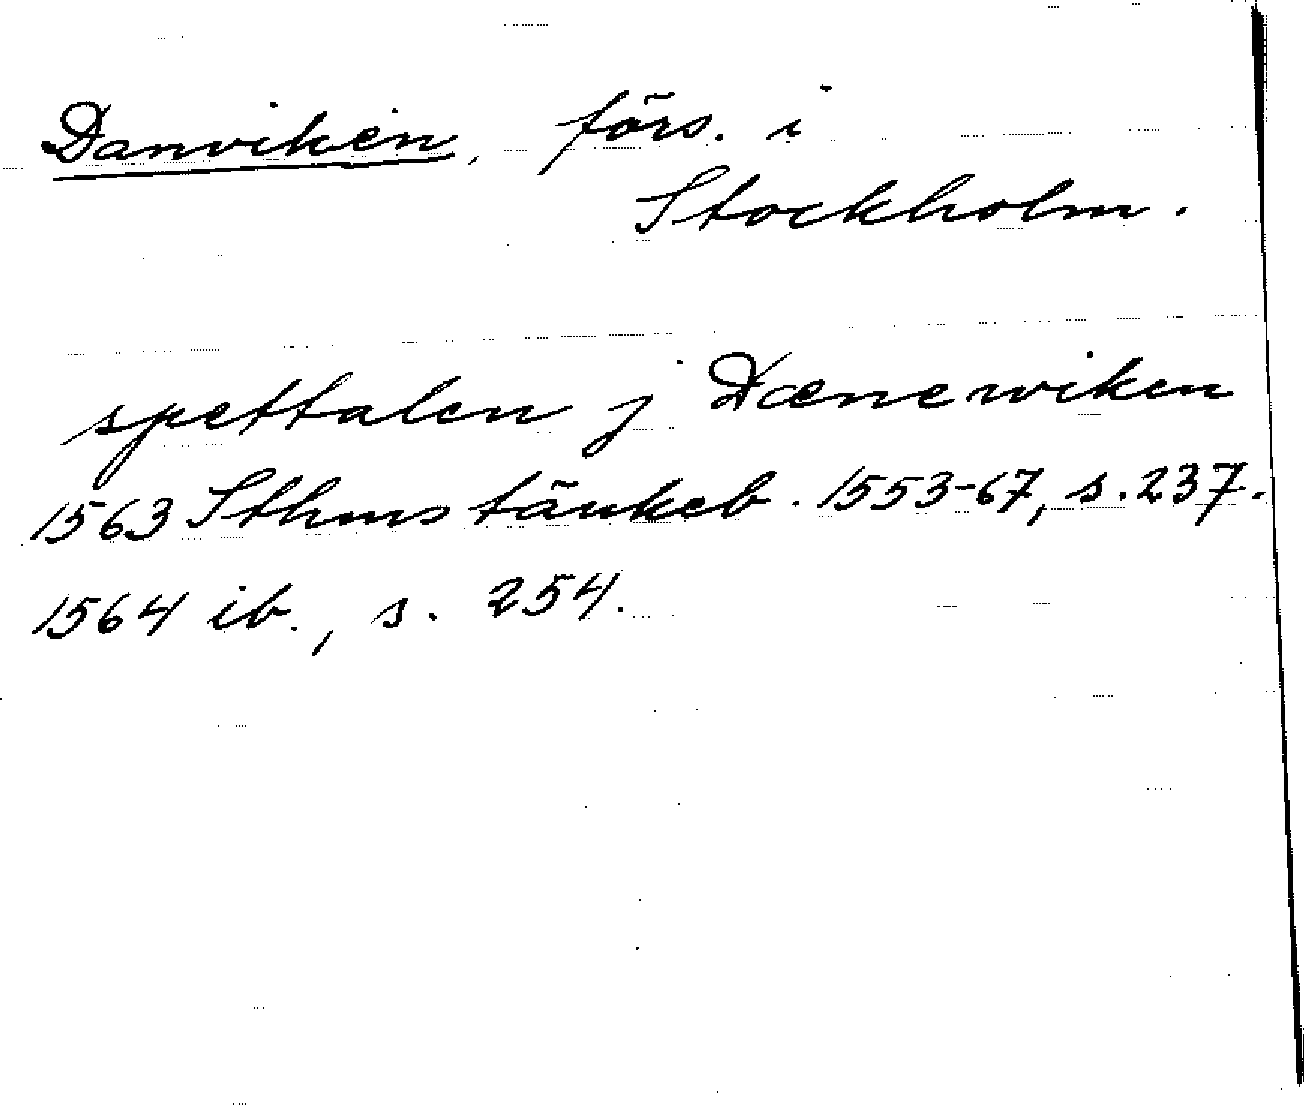 Danviken, förs. i
Stockholm.
spettalen j Dænewiken
1563 Sthms tänkeb. 1553-67, s. 237.
1564 ib., s. 254.